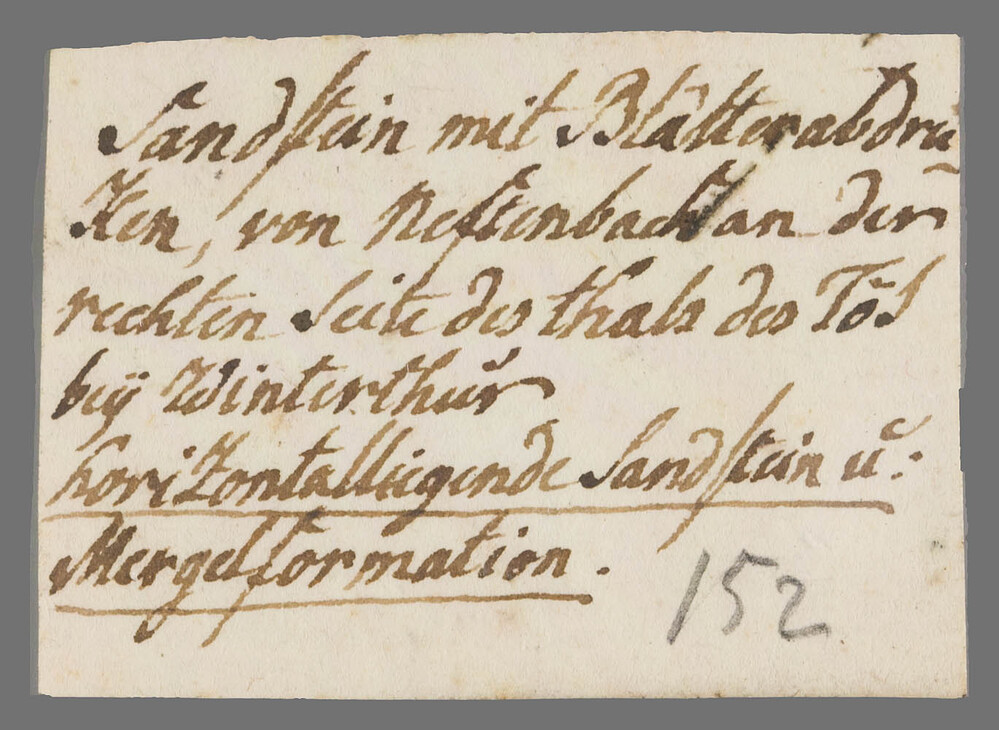 Sandstein mit Blätterabdru
ken, von Neftenbach an der
rechten Seite des thals des Tös
beÿ Winterthur
horizontalliegende Sandstein u:
Mergelformation.
152